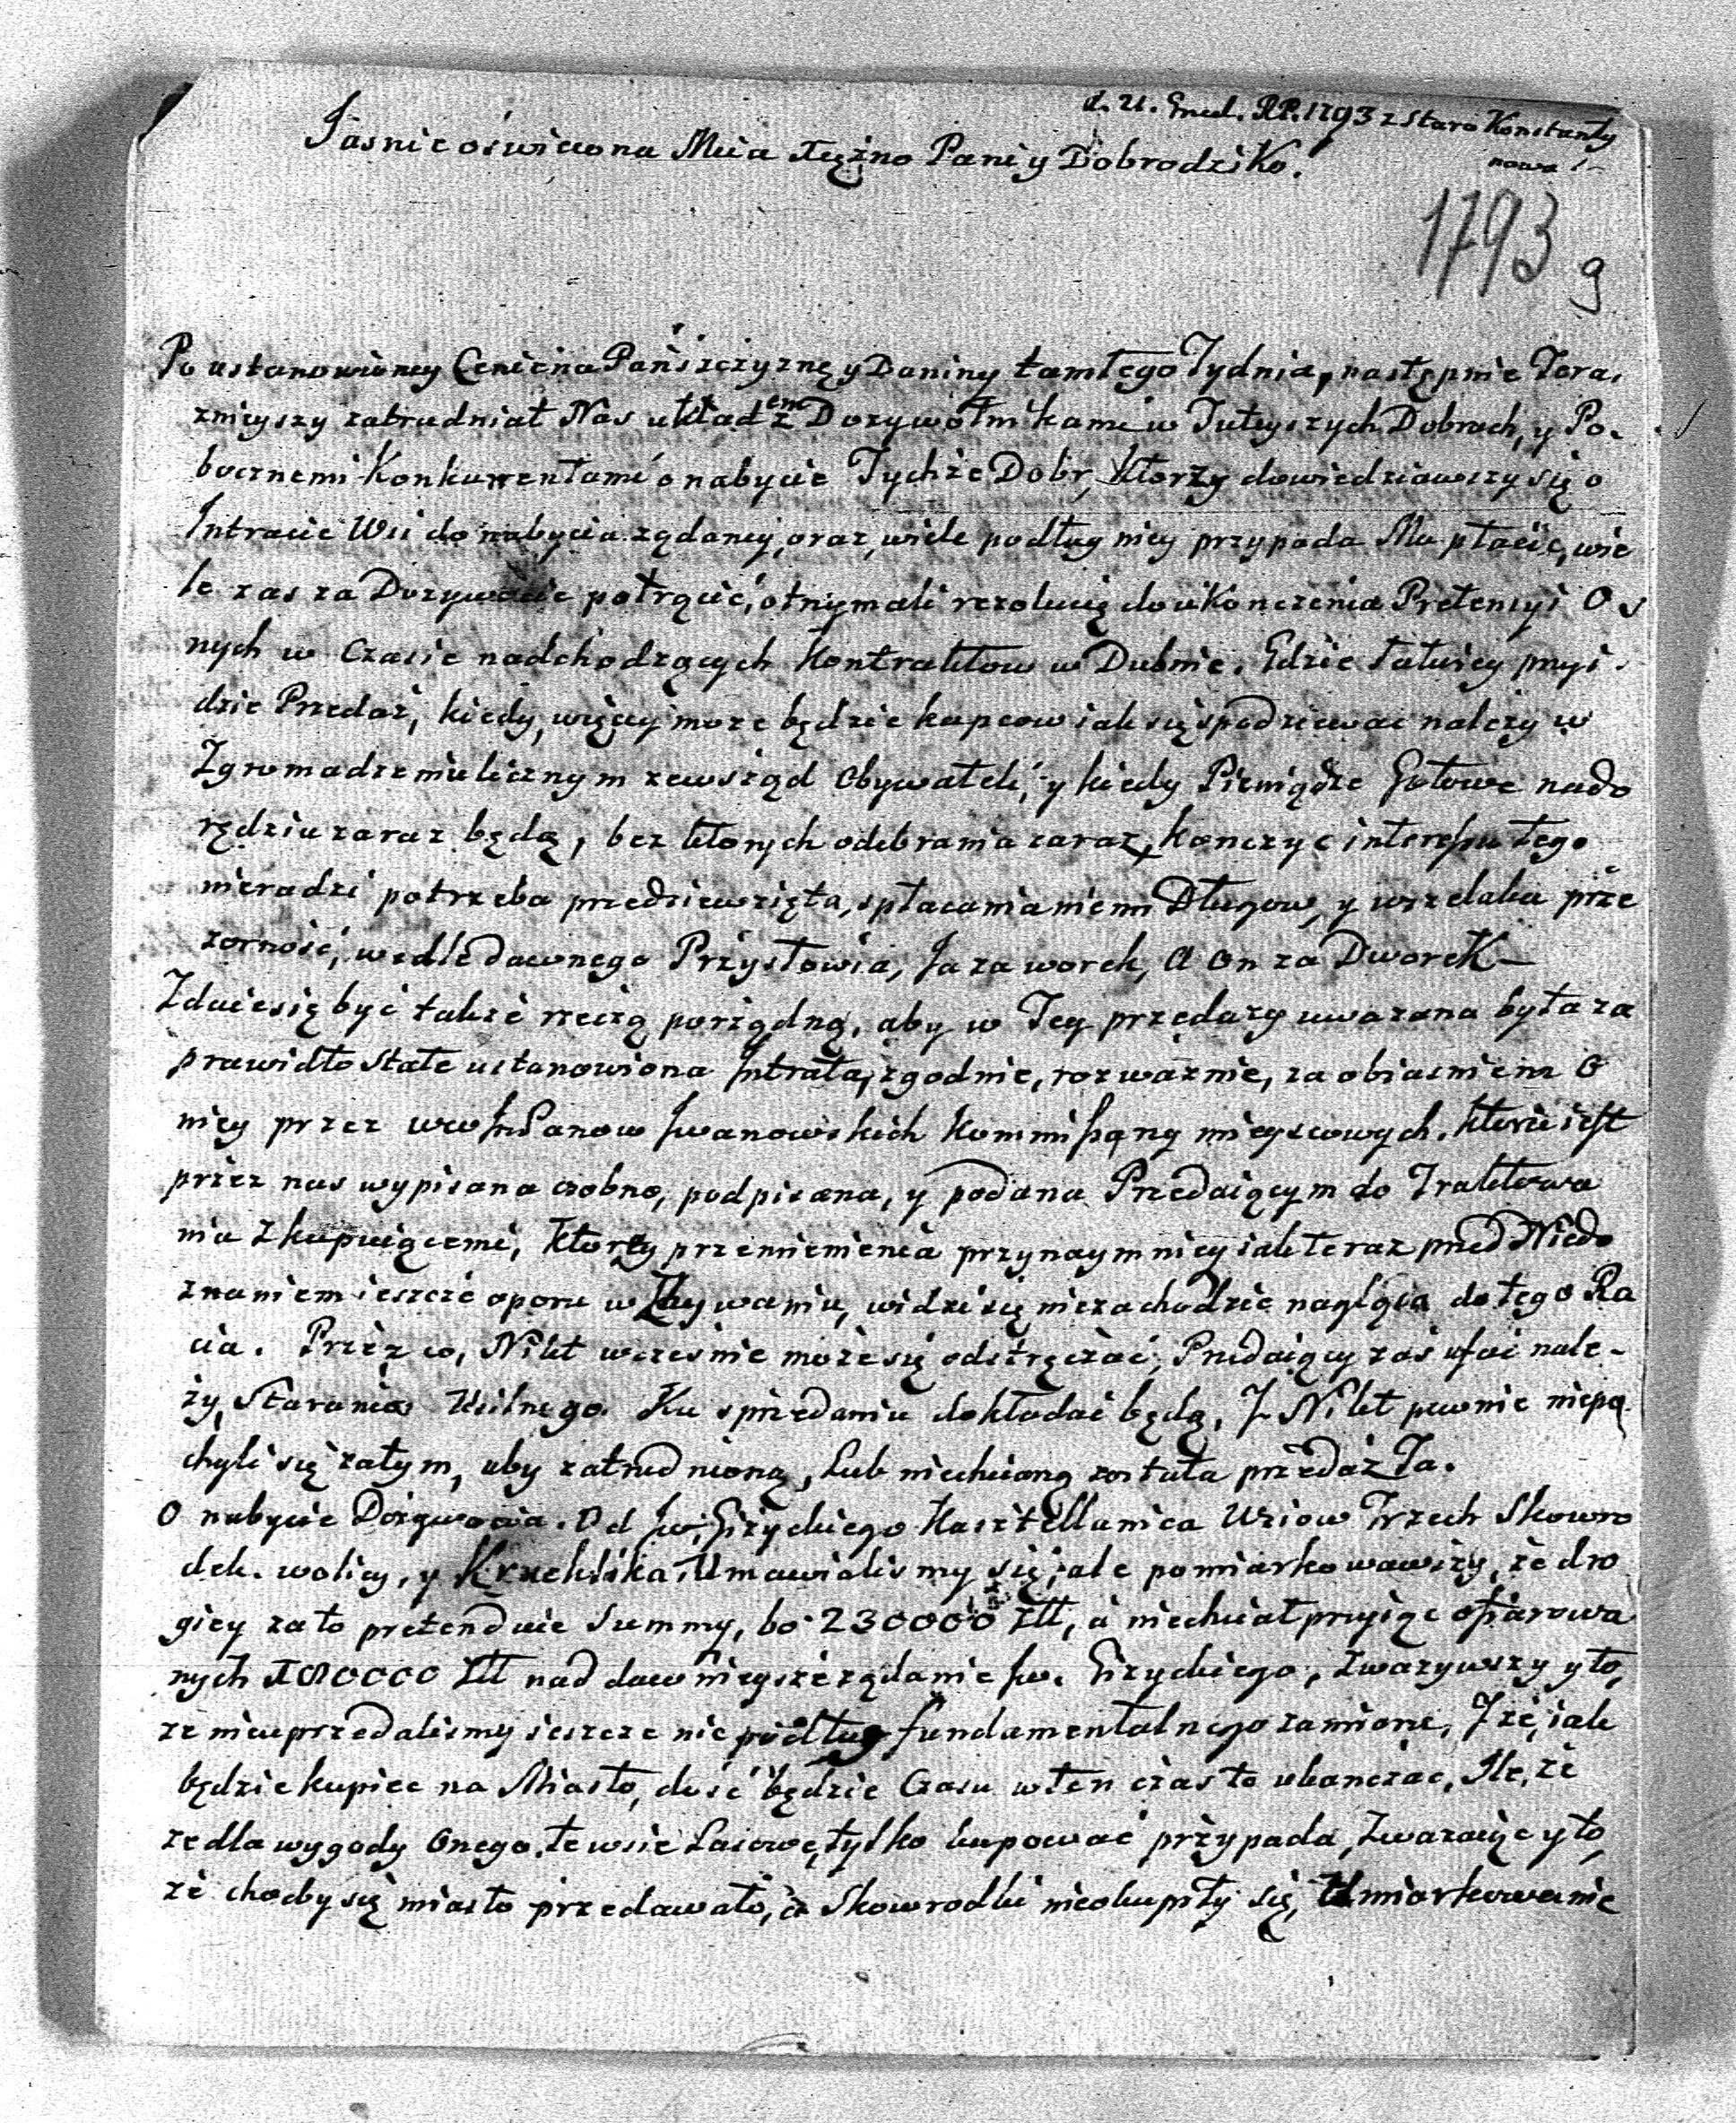 d. 21. Grud. RP. 1793 z Staro Konstanty
nowa
Jasnie oświecona Mcia Xiężno Pani y Dobrodziko.
1793
9
Po ustanowioney Cenie na Pańszczyznę y Daniny tamtego Tydnia, następnie Tera,
znieyszy zatrudniał Nas układ z Dozywotnikami w Tuteyszych Dobrach, y Po.
bocznemi Konkurrentami o nabycie Tychże Dobr, ktorzy dowiedziawszy się o
Intracie Wsi do nabycia ządaney, oraz, wiele podług niey przypada Mu płacić, wie
le zas za Dozywocie potrącić, otrzymali rezolucię do ukonczenia Pretensyi O
nych w Czasie nadchodzących Kontraktow w Dubnie. Gdzie łatwiey przyi.
dzie Przedaż, kiedy, więcey moze będzie kupcow iak się spodziewac należy w
Zgromadzeniu licznym zewsząd Obywateli, y kiedy Pieniądze Gotowe nado
rędziu zaraz będą, bez ktorych odebrania zaraz, konczyc interessu tego
nieradzi potrzeba przedsiewzięta, spłacania niemi Długow, y wszelaka prze
zorność, wedle dawnego Przysłowia, Ja za worek, A On za Dworek —
Zdaie się być także rzeczą porządną, aby w Tey przedazy uwazana była za
prawidło Stałe ustanowiona Intrata, zgodnie, rozwaznie, za obiasnieniem O
niey przez Panow Iwanowskich Kommissarzy mieyscowych. która iest
przez nas wypisana osobno, podpisana, y podana Przedaiącym do Traktowa
nia z kupuiącemi, Ktorzy przemienienia przynaymniey iak teraz przed Niedo
znaniem ieszcze oporu w Zbywaniu, widzi się nie zachodzic nagląca do tego Ra
cia. Przez co, Nikt wczesnie może się odstręczać; Przedaiący zaś ufać nale-
ży, Starania Usilnego Ku sprzedaniu dokładać będą, I Nikt pewnie nie po
chyli się zatym, aby zatrudnioną, Lub niechcianą została przedaż Ta.
O nabycie Dozywocia. Od Jw. Gizyckiego Kasztellanica Wsiow Trzech Skowro
dek. wolicy, y Umawialismy się; ale pomiarkowawszy, że dro
giey za to pretenduie Summy, bo 230000 Zlt, a niechciał przyiąc ofiarowa
nych 180000 Zlt nad dawnieysze ządanie Jw. Gizyckiego; Zwazywszy y to,
ze nieuprzedalismy ieszcze nic podług fundamentalnego zamiaru, I że, iak
będzie kupiec na Miasto, dość będzie Czasu w ten czas to ukanczac, Ile, że
ze dla wygody Onego, te wsie Lasowe, tylko kupować przypada, Zwazaiąc y to,
że choćby się miasto przedawało, a Skowrodki nieokupiły się, Umiarkowanie